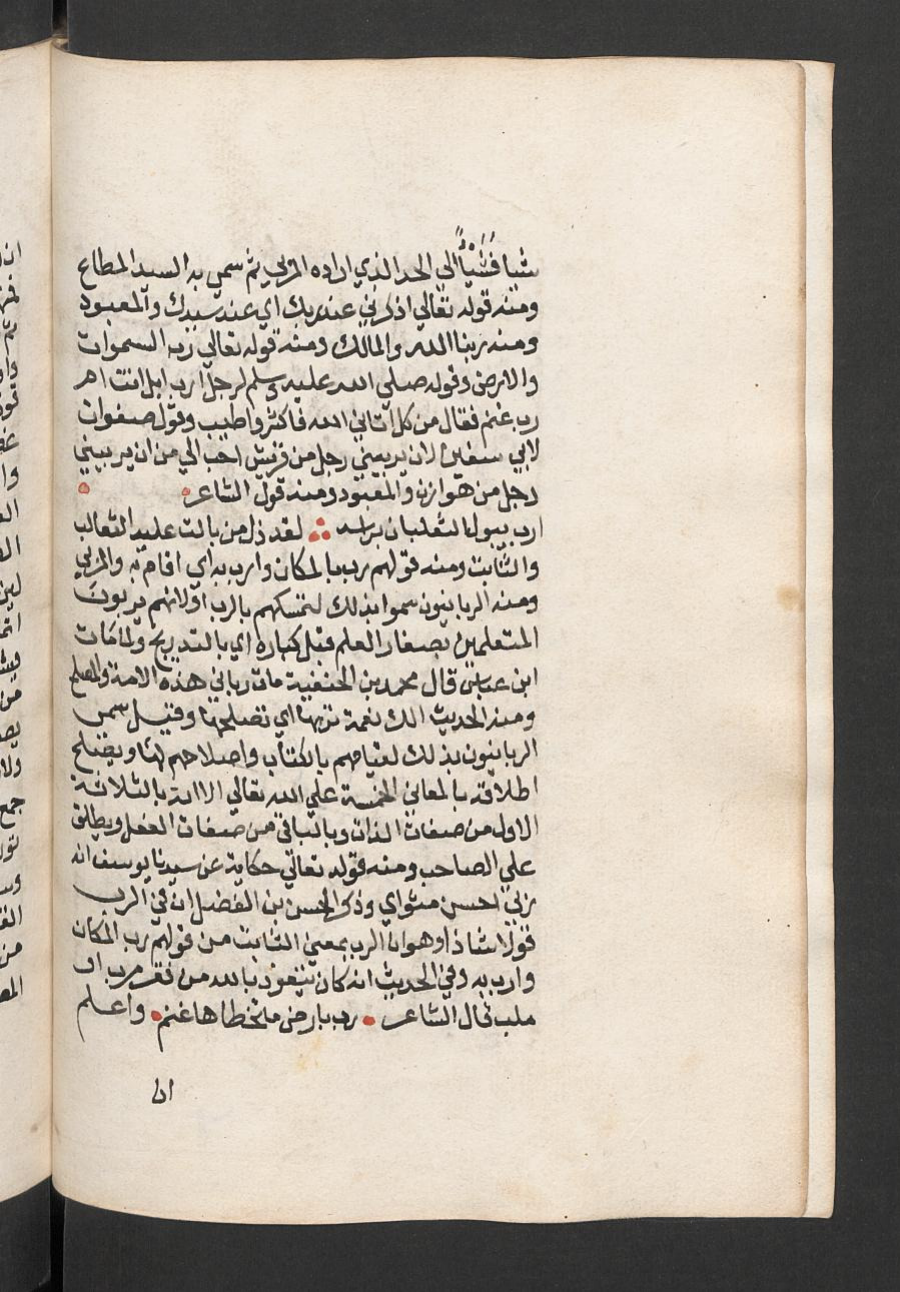 شيا فَشَيْأً الي الحد الذي اراده المربي ثم سمي به السيد المطاع
ومنه قوله تعالي اذكرني عند ربك اي عند سيدك والمعبود
ومنه ربنا الله والمالك ومنه قوله تعالي رب السموات
والارض وقوله صلي الله عليه وسلم لرجل ارب ابل انت ام
رب غنم فقال من كل اتاني الله فاكثر واطيب وقول صفوان
لابي سفين لان يربيني رجل من قريش احب الي من ان يربيني
رجل من هوازن والمعبود ومنه قول الشاعر
ارب يبول الثعلبان براسه لقد ذل من بالت عليه الثعالب
والثابت ومنه قولهم رب بالمكان وارب به اي اقام به والمربي
ومنه الربانيون سموا بذلك لتمسكهم بالرب اولانهم يربون
المتعلمين بصغار العلم قبل كباره اي بالتدريج ولما مات
ابن عباس قال محمد بن الحنفية مات رباني هذه الامة والمصلح
ومنه الحديث الك نعمة تربها اي تصلحها وقيل سمي
الربانيون بذلك لقيامهم بالكتاب واصلاحهم لها ويصلح
اطلاقه بالمعاني الخمسة علي الله تعالي الا انه بالثلاثة
الاول من صفات الذات وبالباقي من صفات الفعل ويطلق
علي الصاحب ومنه قوله تعالي حكاية عن سيدنا يوسف انه
ربي احسن مثواي وذكر الحسن بن الفضل ان في الرب
قولا شاذا وهو ان الرب بمعني الثابت من قولهم رب المكان
وارب به وفي الحديث انه كان يتعوذ بالله من فقر مرب او
ملب قال الشاعر رب بارض ما تخطاها غنم واعلم
ان